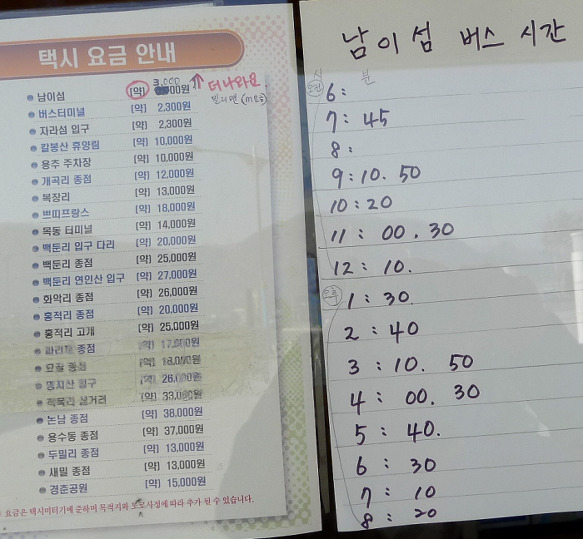 택시 요금 안내
남이섬 (약) 3,000원 ↑ 더나와요.
버스터미널 (약) 2,300원
자라섬 입구 (약) 2,300원
칼봉산 휴양림 (약) 10,000원
용추 주차장 (약) 10,000원
개곡리 종점 (약) 12,000원
복장리 (약) 13,000원
쁘띠프랑스 (약) 18,000원
목동 터미널 (약) 14,000원
백둔리 입구 다리 (약) 20,000원
백둔리 종점 (약) 25,000원
백둔리 연인산 입구 (약) 27,000원
화악리 종점 (약) 26,000원
홍적리 종점 (약) 20,000원
홍적리 고개 (약) 25,000원
종점 (약) 17,000원
종점 (약) 18,000원
명지산 입구 (약) 26,000원
적목리 삼거리 (약) 33,000원
논남 종점 (약) 38,000원
용수동 종점 (약) 37,000원
두밀리 종점 (약) 13,000원
새밀 종점 (약) 13,000원
경춘공원 (약) 15,000원
요금은 택시미터기에 준하며 목적지와 도로사정에 따라 추가 될 수 있습니다.
남이섬 버스 시간
시 분
오전 6:
7: 45
8:
9: 10. 50
10: 20
11: 00. 30
12: 10.
오후 1: 30
2: 40
3: 10. 50
4: 00. 30
5: 40.
6: 30
7: 10
8: 20